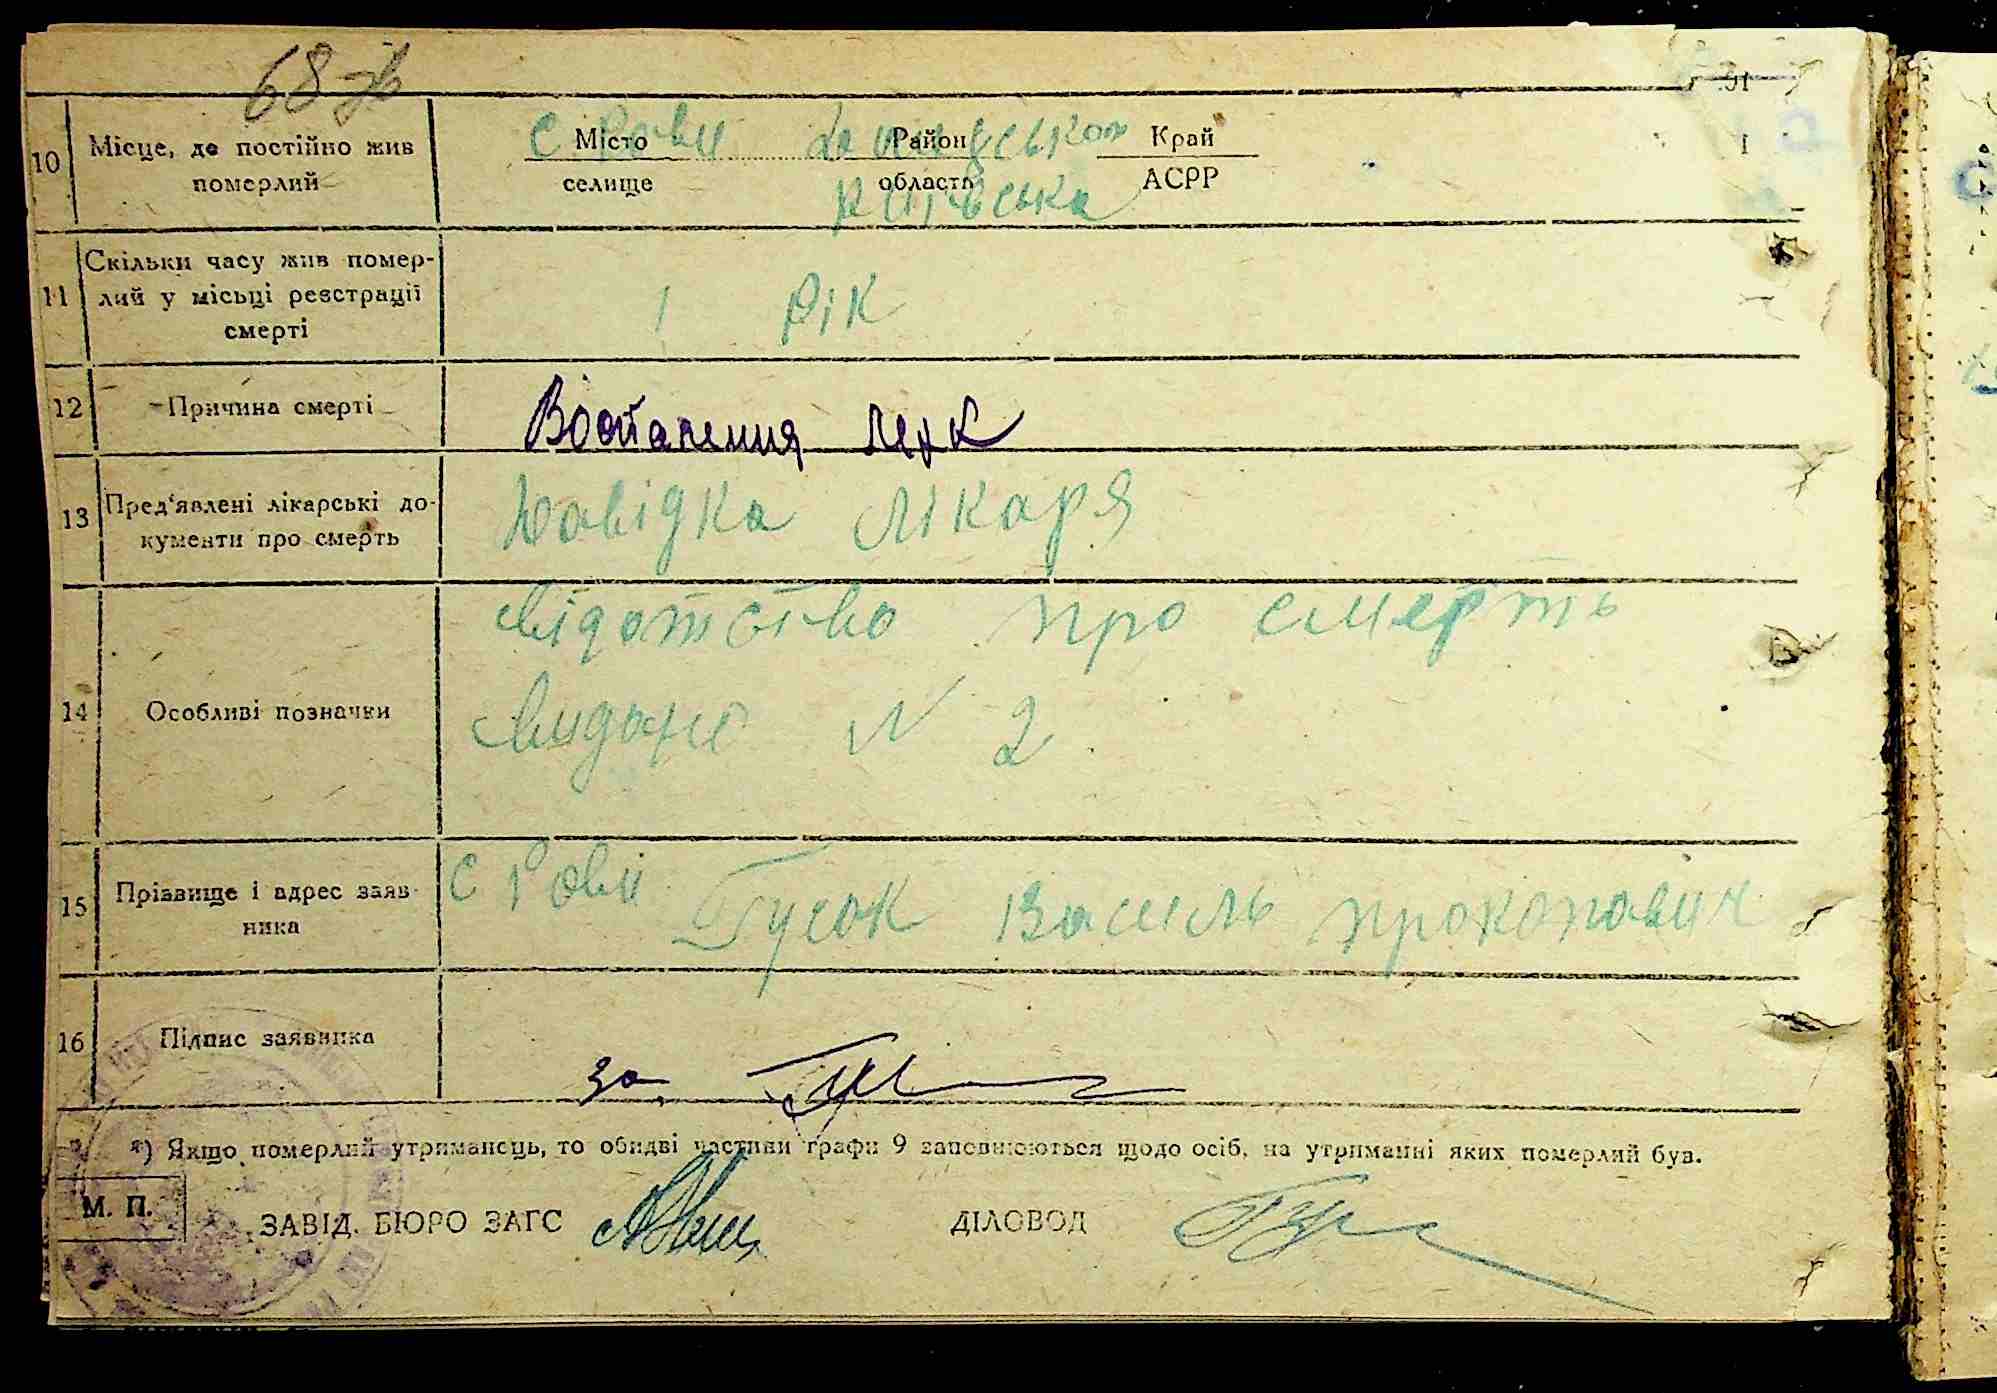 68 зв
10 Місце, де постійно жив померлий
с Рови
Місто Район Край
селище область АСРР
Київська
11 Скільки часу жив помер-
лий у місьці реєстрації
смерті
1 Рік
12 Причина смерті
Воспаления легк
13 Пред'явлені лікарські до-
кументи про смерть
Довідка лікаря
14 Особливі позначки
свідотство про смерть
видане N 2
15 Прізвище і адрес заяв-
ника
с Рови Гусак Василь прокопович
16 Підпис заявника
за
*) Якщо померлий утриманець, то обидві частини графи 9 заповнюються щодо осіб, на утриманні яких померлий був.
М. П.
ЗАВІД. БЮРО ЗАГС ДІЛОВОД